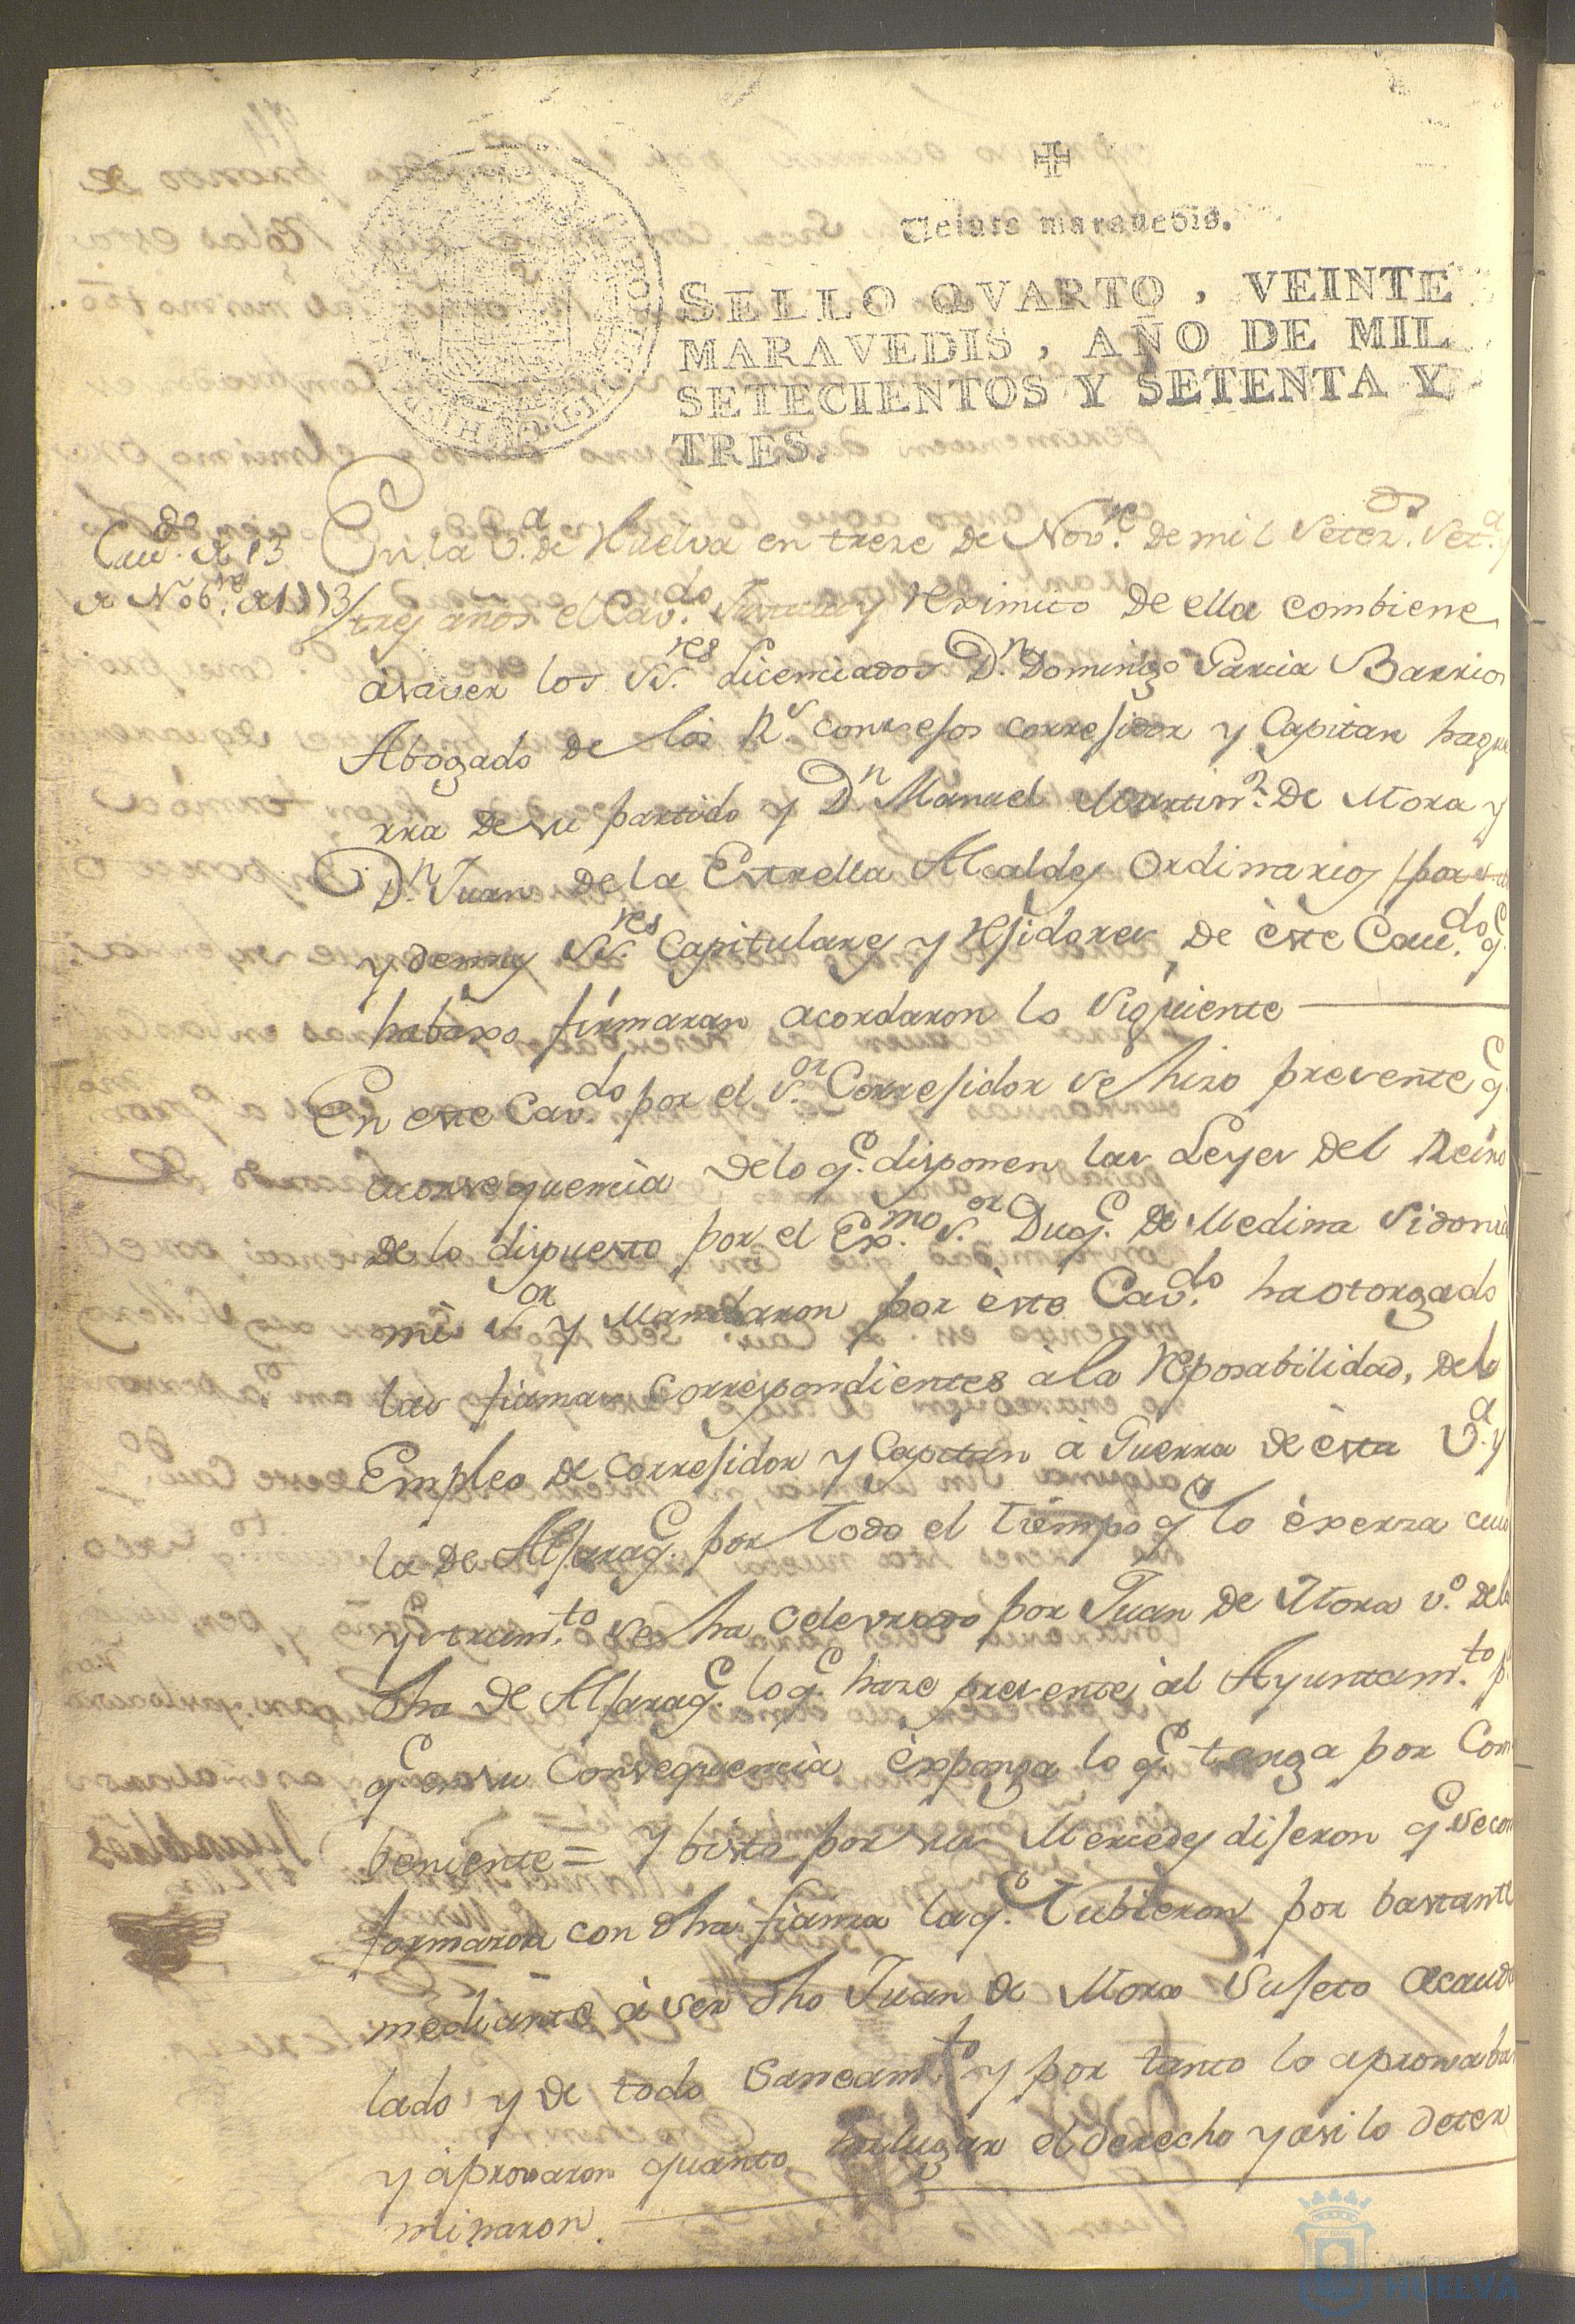 Veinte maravedis.
SELLO QVARTO, VEINTE
MARAVEDIS, AÑO DE MIL
SETECIENTOS Y SETENTA Y
TRES.
Cavdo. de 13
de Nobre. de 1773
En la Va. de Huelva en treze de Novre. de mil setezos. seta. y
tres años el Cavdo. Justicia y Rximito de ella combiene
a saver los SSres. Licenciados Dn. Domingo Garcia Barrios
Abogado de los Rs. consejos correjidor y Capitan hague
rra de su partido y Dn Manuel Martinz. de Mora y
Dn. Juan de la Estrella Alcaldes Ordinarios
y demas SSres. Capitulares y Rejidores de èste Cavdo. q.
habaxo firmaran acordaron lo siguiente
En este Cavdo. por el Sor. Correjidor se hizo presente q.
aconsequencia de lo q. disponen las Leyes del Reino
de lo dispuesto por el Exmo. Sor. Duq. de Medina Sidonia
mi Sor y Mandaron por èste Cavdo. ha otorgado
las fiamas Correspondientes a la Reposabilidad, del
Empleo de Correjidor y Capitan à Guerra de èsta Va. y
la de Aljaraq. por todo el tiempo q. lo èxerza cuio
ystrumto. se ha celevrado por Juan de Mora vo. de la
dha de Aljaraq. lo q. haze presente àl Ayuntamto. pa.
q. en su Consequencia èxponga lo q. tenga por Com
beniente = y bista por sus Mercedes dijeron q. se con
formaron con dha fianza la q. tubieron por bastante
mediante à ser dho Juan de Mora sujeto acauda
lado y de todo Saneamto. y por tanto lo aprovaban
y aprovaron quanto ha lugar el derecho y asi lo deter
minaron.
HUELVA